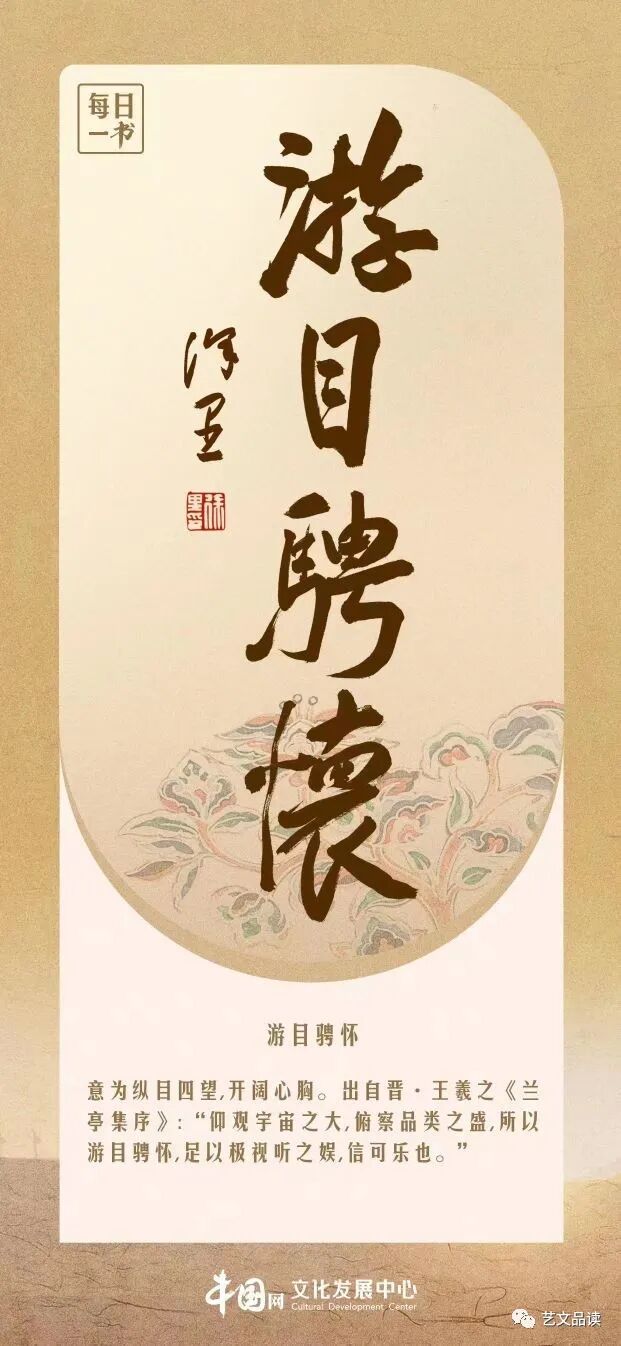 每日
一书
游目騁懷
徐里
游目骋怀
意为纵目四望,开阔心胸。出自晋·王羲之《兰
亭集序》:“仰观宇宙之大,俯察品类之盛,所以
游目骋怀,足以极视听之娱,信可乐也。”
中国网 文化发展中心
Cultural Development Center
艺文品读